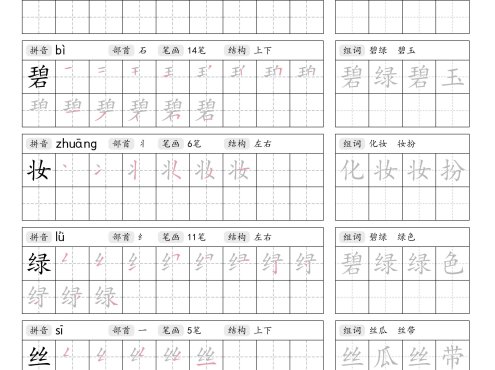 拼音 bì 部首 石 笔画 14笔 结构 上下 组词 碧绿 碧玉
碧 碧绿碧玉
碧
拼音 zhuāng 部首 丬 笔画 6笔 结构 左右 组词 化妆 妆扮
妆 妆 化妆妆扮
拼音 lǜ 部首 纟 笔画 11笔 结构 左右 组词 碧绿 绿色
绿 碧绿绿色
绿
拼音 sī 部首 一 笔画 5笔 结构 上下 组词 丝瓜 丝带
丝 丝 丝瓜丝带